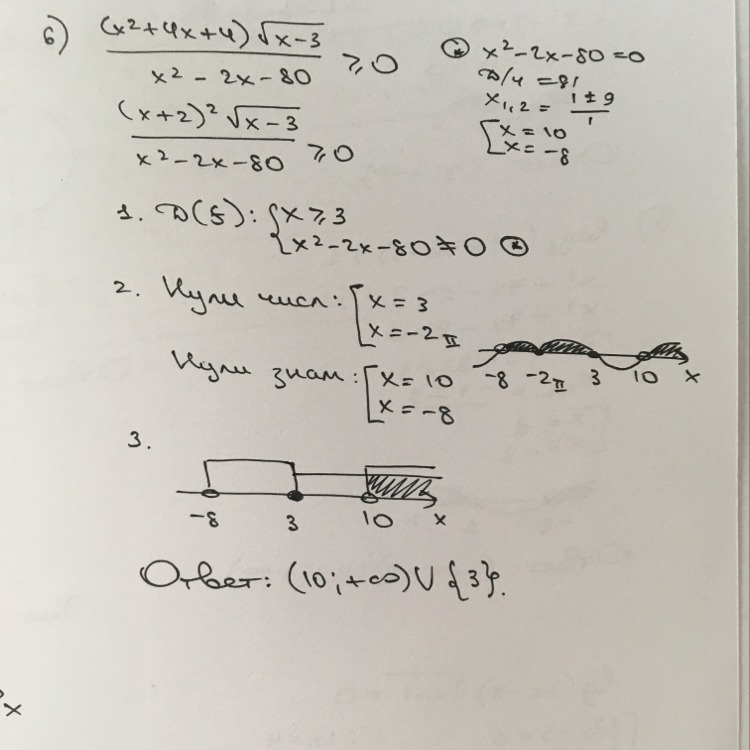 б) (x²+4x+4)√x-3 / x² - 2x - 80 ≥ 0
(x+2)²√x-3 / x² - 2x - 80 ≥ 0
* x² - 2x - 80 = 0
D/4 = 81
x₁,₂ = 1 ± 9 / 1
[ x = 10
x = -8
1. D(f): { x ≥ 3
x² - 2x - 80 ≠ 0 *
2. Нули числ: [ x = 3
x = -2 II
Нули знам: [ x = 10
x = -8
-8 -2 II 3 10 x
3.
-8 3 10 x
Ответ: (10; +∞) ∪ {3}.
x